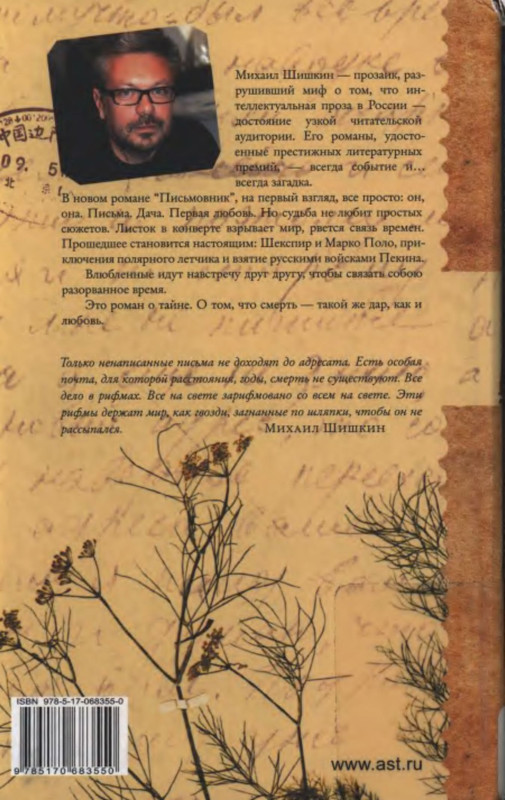 Михаил Шишкин — прозаик, раз-
рушивший миф о том, что ин-
теллектуальная проза в России —
достояние узкой читательской
аудитории. Его романы, удосто-
енные престижных литературных
премий, — всегда событие и...
всегда загадка.
В новом романе "Письмовник", на первый взгляд, все просто: он,
она. Письма. Дача. Первая любовь. Но судьба не любит простых
сюжетов. Листок в конверте взрывает мир, рвется связь времен.
Прошедшее становится настоящим: Шекспир и Марко Поло, при-
ключения полярного летчика и взятие русскими войсками Пекина.
Влюбленные идут навстречу друг другу, чтобы связать собою
разорванное время.
Это роман о тайне. О том, что смерть — такой же дар, как и
любовь.
Только ненаписанные письма не доходят до адресата. Есть особая
почта, для которой расстояния, годы, смерть не существуют. Все
дело в рифмах. Все на свете зарифмовано со всем на свете. Эти
рифмы держат мир, как гвозди, загнанные по шляпки, чтобы он не
рассыпался.
Михаил Шишкин
ISBN 978-5-17-068355-0
9 785170 683550
www.ast.ru